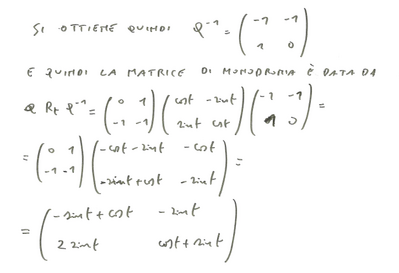 SI OTTIENE QUINDI Q⁻¹ = ( -1 -1 ; 1 0 )
E QUINDI LA MATRICE DI MONODROMIA È DATA DA
Q Rt Q⁻¹ = ( 0 1 ; -1 -1 ) ( cost -sint ; sint cost ) ( -1 -1 ; 1 0 ) =
= ( 0 1 ; -1 -1 ) ( -cost - sint -cost ; -sint + cost -sint ) =
= ( -sint + cost -sint ; 2 sint cost + sint )